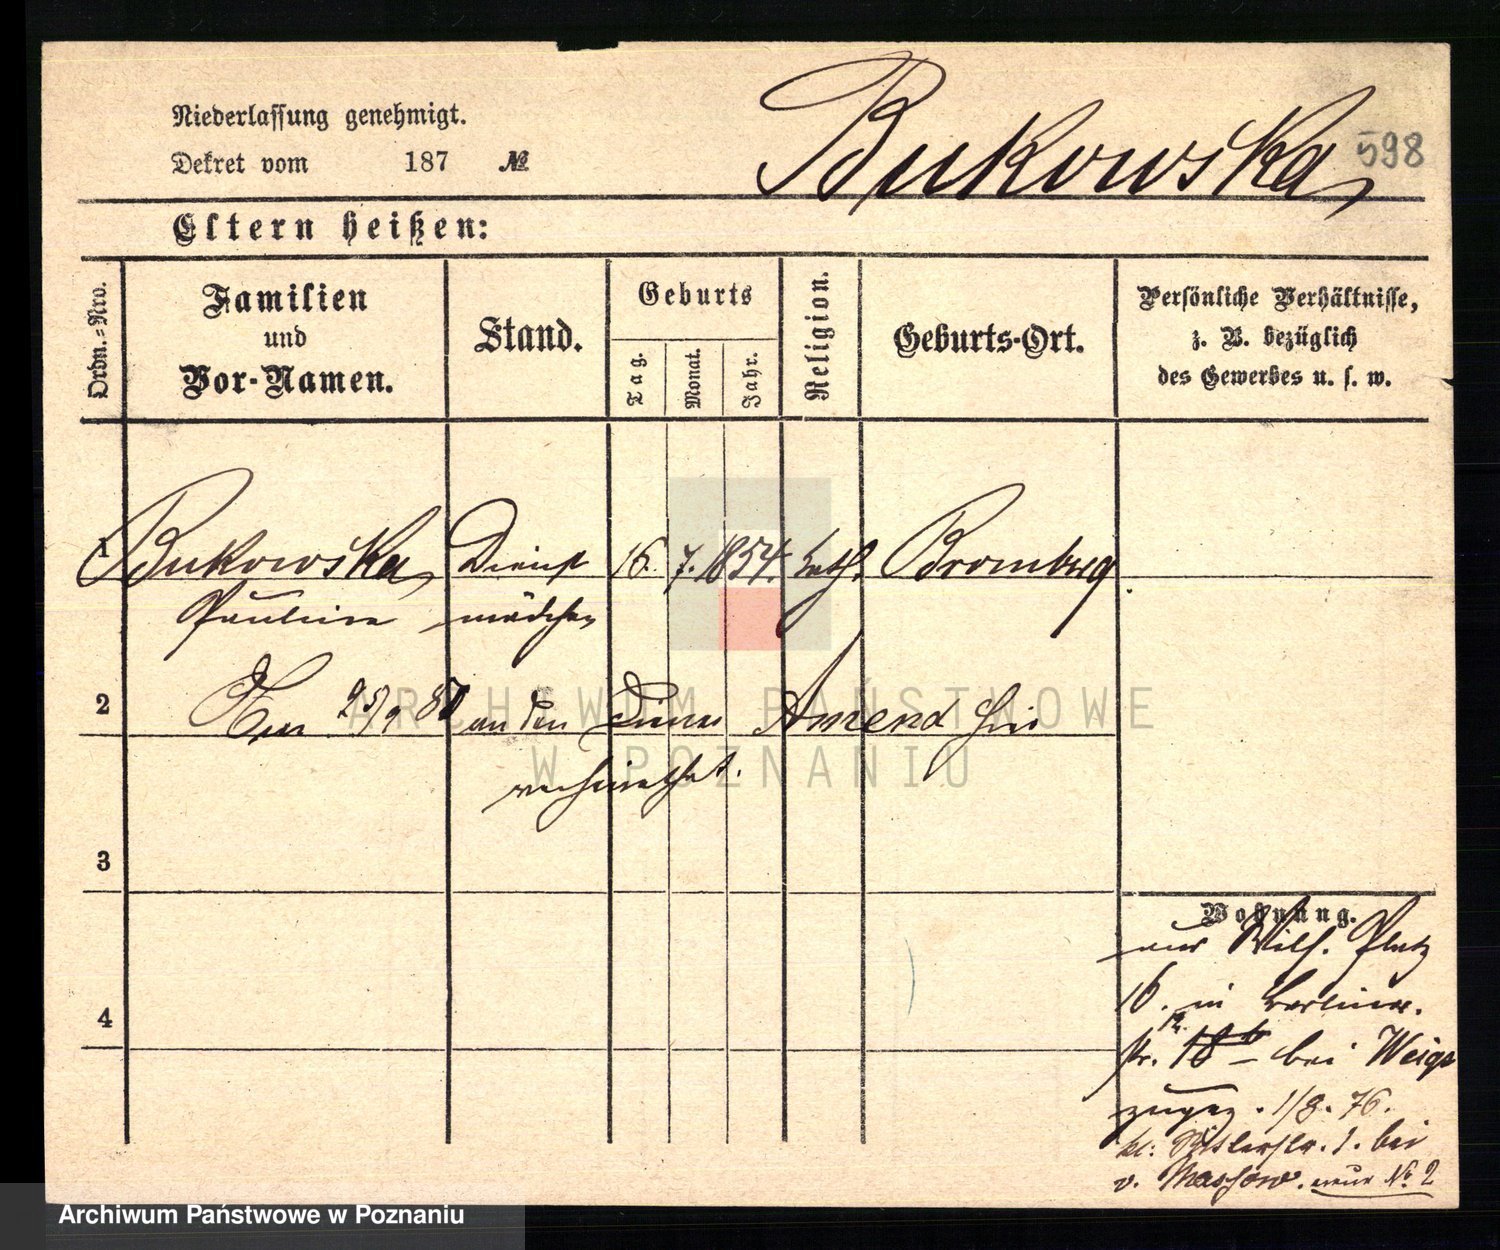 Niederlassung genehmigt.
Dekret vom 187 №
Bukowska
598
Eltern heißen:
Ordn.-Nro.
Familien
und
Vor-Namen.
Stand.
Geburts
Tag.
Monat.
Jahr.
Religion.
Geburts-Ort.
Persönliche Verhältnisse,
z. B. bezüglich
des Gewerbes u. s. w.
1 Bukowska Dienst 16. 7. 1854. kath. Bromberg.
Pauline mädchen
2 25/9 80 an den Diener Amend hier
verheirathet.
3
Wohnung.
aus Wilh. Platz
16. in Berliner.
4
12.
str. 18 b bei Weige
zugez. 1/8. 76.
kl: Ritterstr. 1. bei
v. Maschow. neue № 2
ARCHIWUM PAŃSTWOWE
W POZNANIU
Archiwum Państwowe w Poznaniu